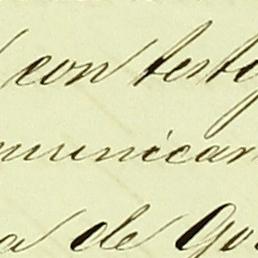 con testi
municar
a de Go